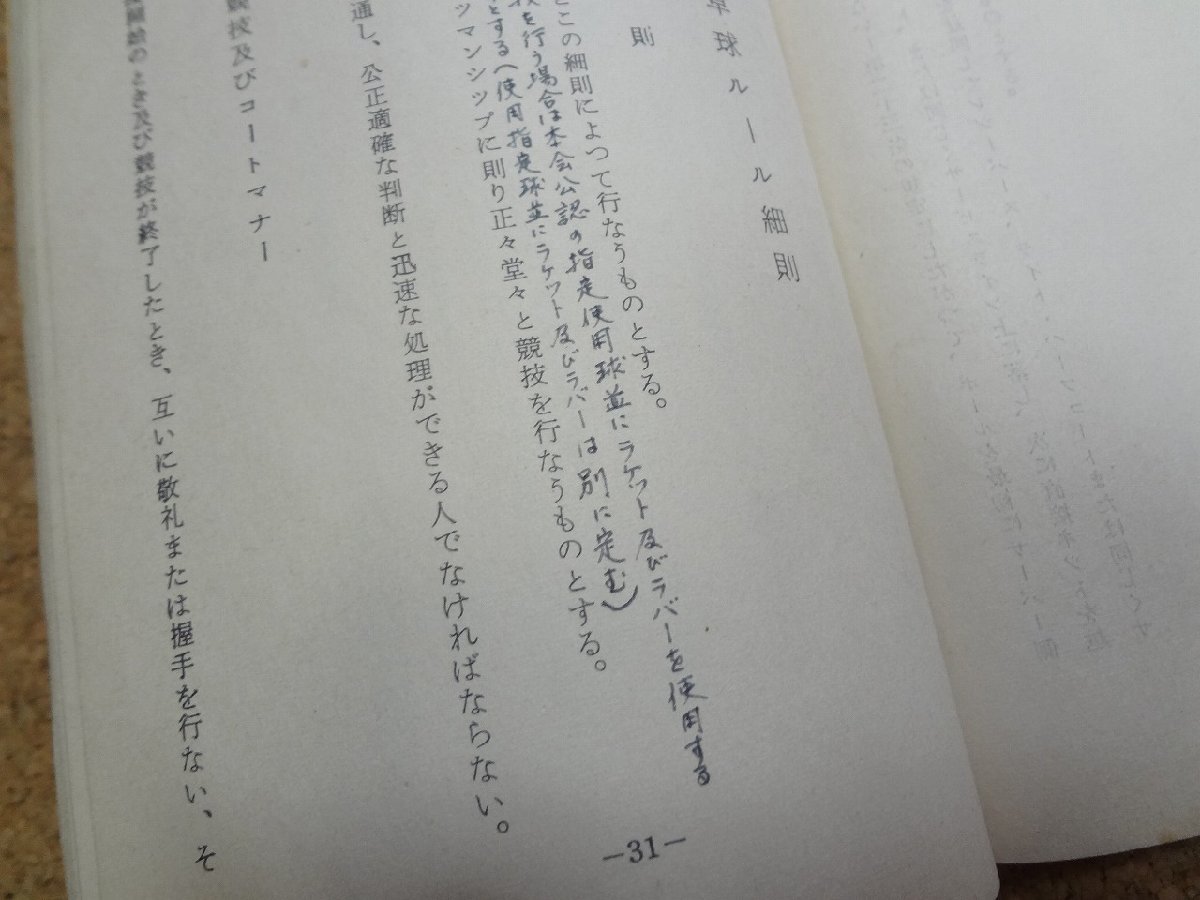 卓球ルール細則
則
とこの細則によつて行なうものとする。
を行う場合は本会公認の指定使用球並にラケット及びラバーを使用する
とする(使用指定球並にラケット及びラバーは別に定む)
ツマンシップに則り正々堂々と競技を行なうものとする。
通し、公正適確な判断と迅速な処理ができる人でなければならない。
競技及びコートマナー
のとき及び競技が終了したとき、互いに敬礼または握手を行ない、そ
—31—